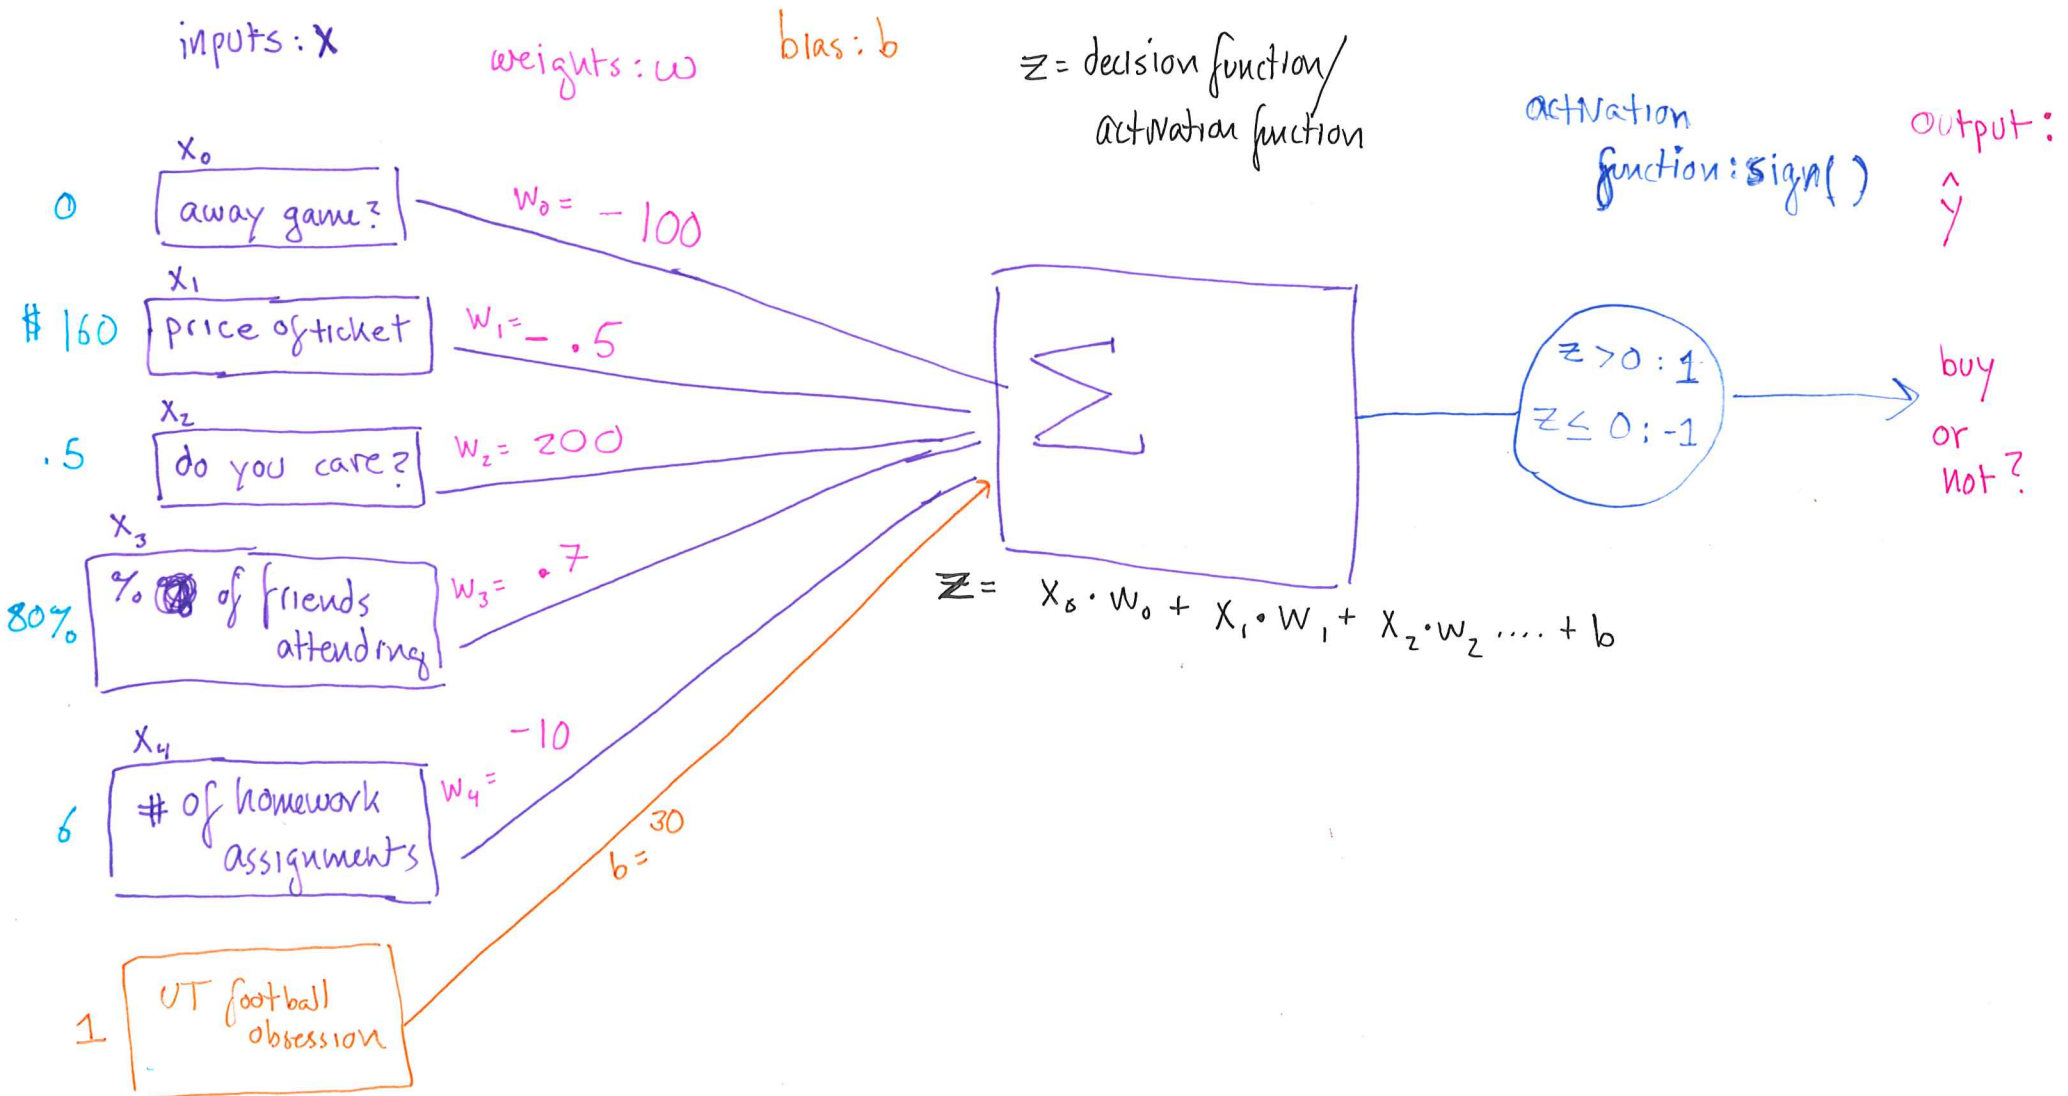 inputs: X
weights: w
bias: b
z = decision function/
activation function
activation
function: sign( )
output:
ŷ
X₀
0
away game?
W₀ = -100
X₁
$ 160
price of ticket
W₁ = -.5
X₂
.5
do you care?
W₂ = 200
X₃
80%
% of friends
attending
W₃ = .7
X₄
6
# of homework
assignments
W₄ = -10
1
UT football
obsession
b = 30
Σ
z = X₀·W₀ + X₁·W₁ + X₂·W₂ .... + b
z > 0 : 1
z ≤ 0 : -1
buy
or
not?